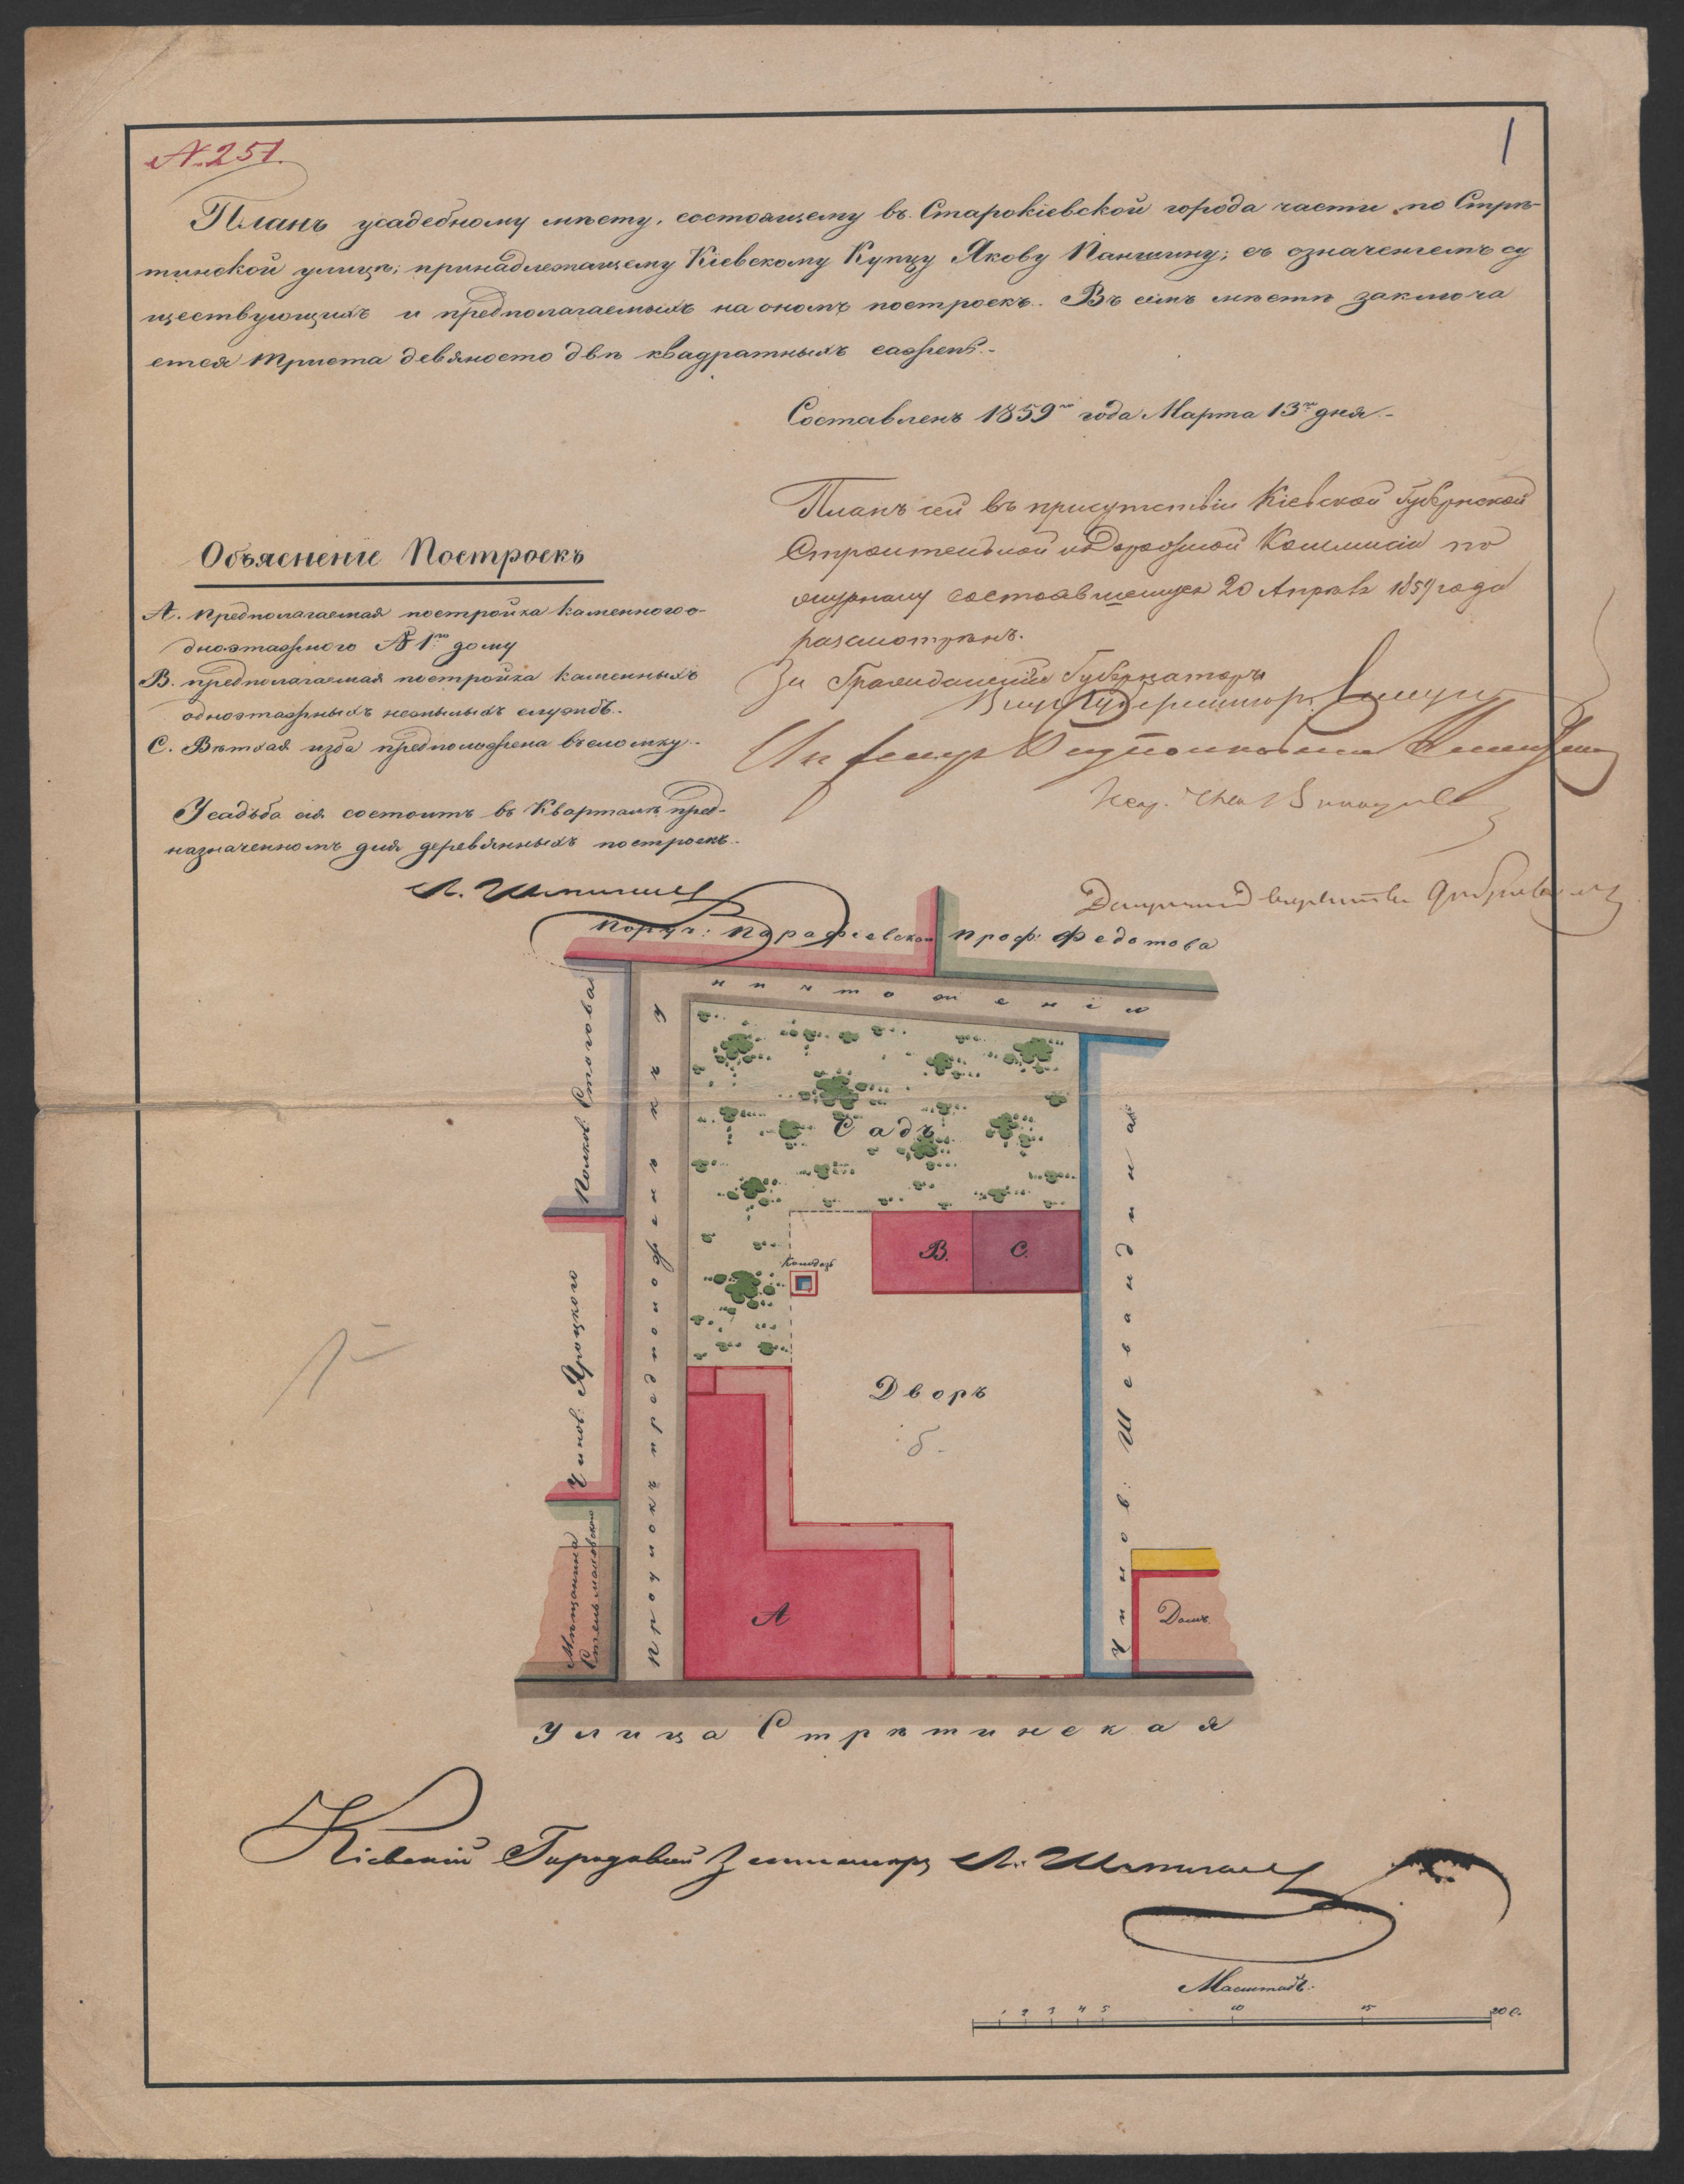 N. 251.
1
Планъ усадебному мѣсту, состоящему въ Старокіевской города части по Стрѣ-
тинской улицѣ; принадлежащему Кіевскому Купцу Якову Паншину; съ означеніемъ су
ществующихъ и предполагаемыхъ на ономъ построекъ. Въ семъ мѣстѣ заключа
ется триста девяносто двѣ квадратныхъ сажень.-
Составленъ 1859го года Марта 13го дня.-
Планъ сей въ присутствіи Кіевской Губернской
Строительной и Дорожной Коммисіи по
журналу состоявшемуся 20 Апрѣля 1859 года
разсмотрѣнъ.
За Гражданскаго Губернатора
Вице Губернаторъ
Инженеръ Подполковникъ
Объясненіе Построекъ
А. Предполагаемая постройка каменного о-
дноэтажного № 1го дому
В. предполагаемая постройка каменныхъ
одноэтажныхъ нежилыхъ службъ.
С. Вѣтхая изба предположена въ сломку.-
Усадьба сія состоитъ въ Кварталѣ пред-
назначенномъ для деревянныхъ построекъ.-
Поруч: Парафіевской
Проф: Федотова
Полков: Стогова
уничтоженію
Проулокъ предположенъ къ
Садъ
В.
С.
Колодезь
Чинов: Яроцкого
Дворъ
б.
Чинов: Шевандиная
Мѣщанина
А
Домъ.
Улица Стрѣтинская
Кіевскій Городовой Землемѣръ
Масштабъ:
1 2 3 4 5 10 15 20 С.